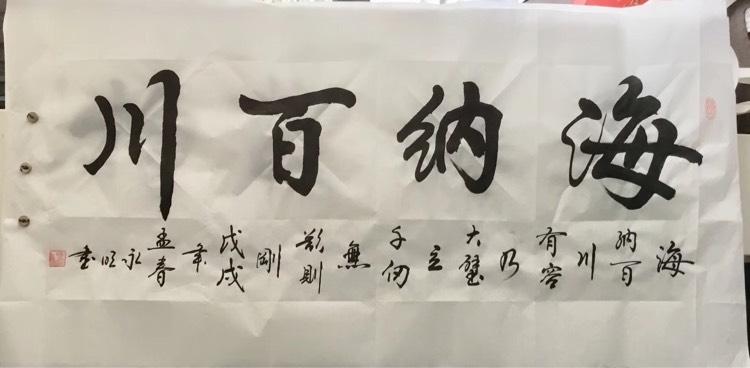 海纳百川
海纳百川有容乃大壁立千仞無欲則剛戊戌年孟春永旺书